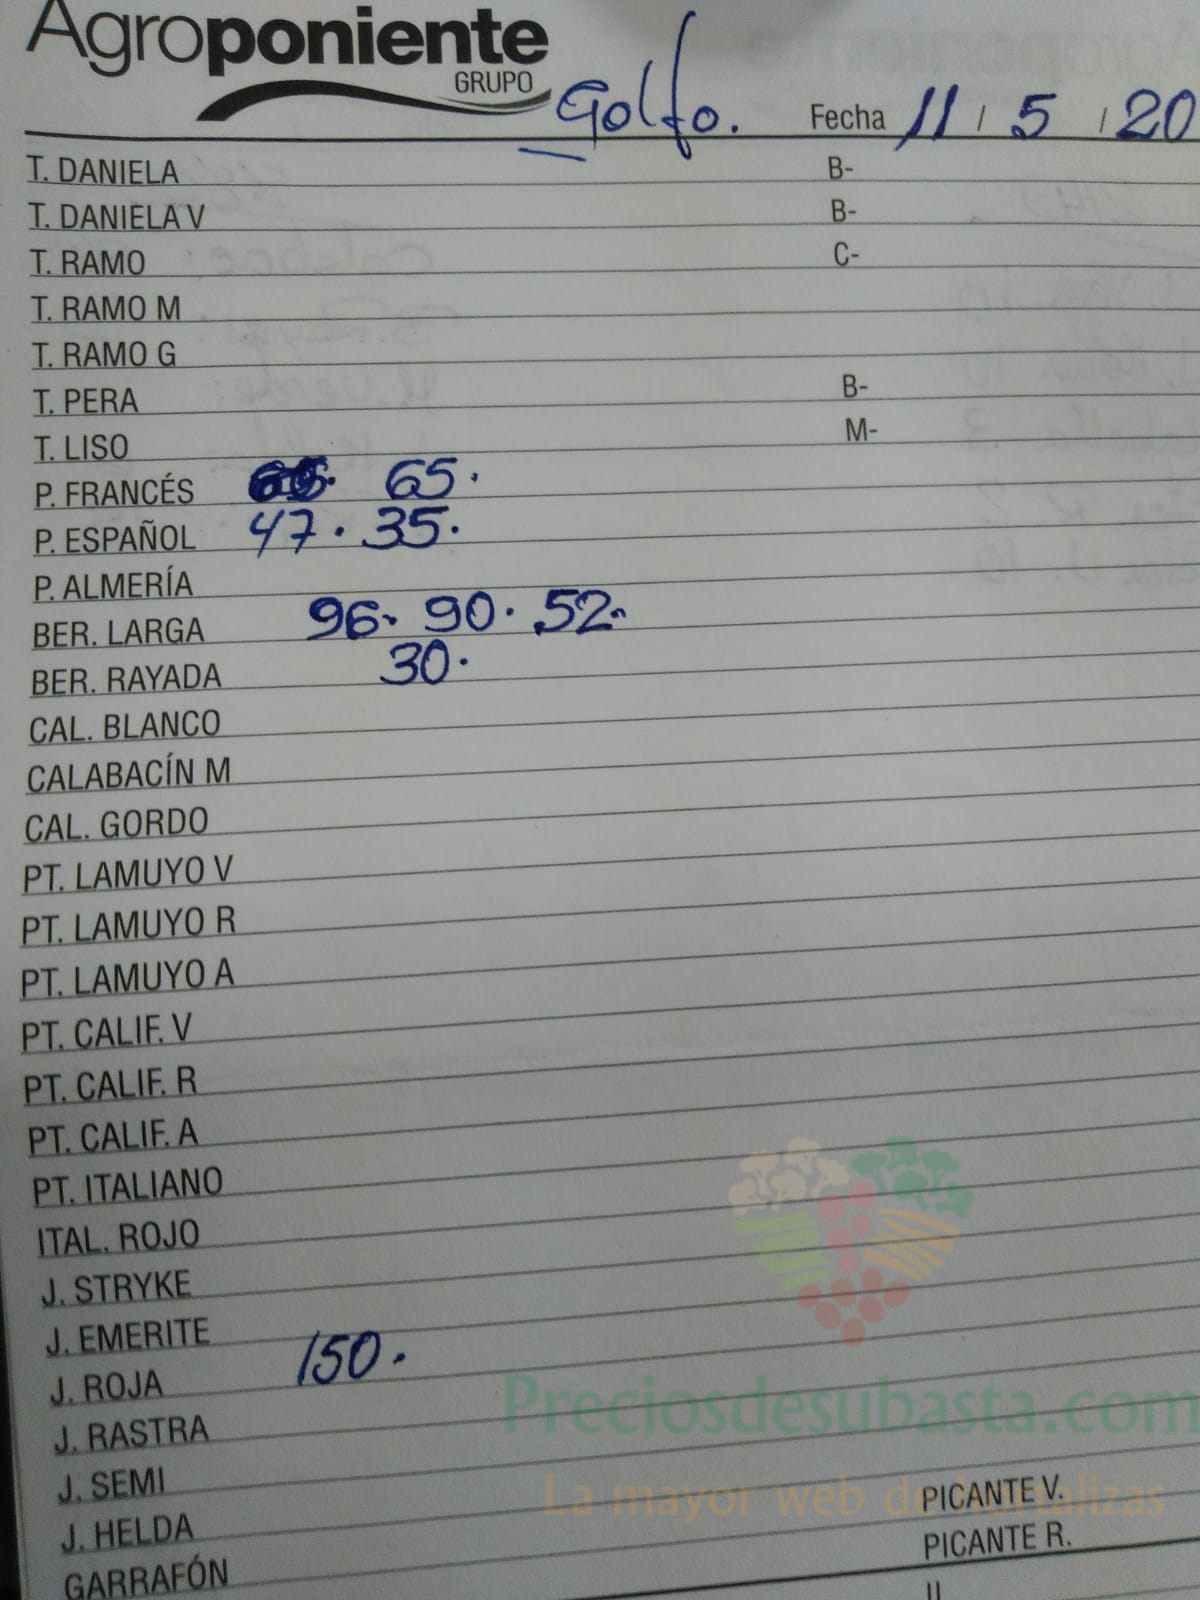 Agroponiente
GRUPO
Golfo. Fecha 11 / 5 / 20
T. DANIELA B-
T. DANIELA V B-
T. RAMO C-
T. RAMO M
T. RAMO G
T. PERA B-
T. LISO M-
P. FRANCÉS 65.
P. ESPAÑOL 47. 35.
P. ALMERÍA
BER. LARGA 96. 90. 52.
BER. RAYADA 30.
CAL. BLANCO
CALABACÍN M
CAL. GORDO
PT. LAMUYO V
PT. LAMUYO R
PT. LAMUYO A
PT. CALIF. V
PT. CALIF. R
PT. CALIF. A
PT. ITALIANO
ITAL. ROJO
J. STRYKE
J. EMERITE
J. ROJA 150.
Preciosdesubasta.com
J. RASTRA
J. SEMI
La mayor web de hortalizas
PICANTE V.
J. HELDA
PICANTE R.
GARRAFÓN